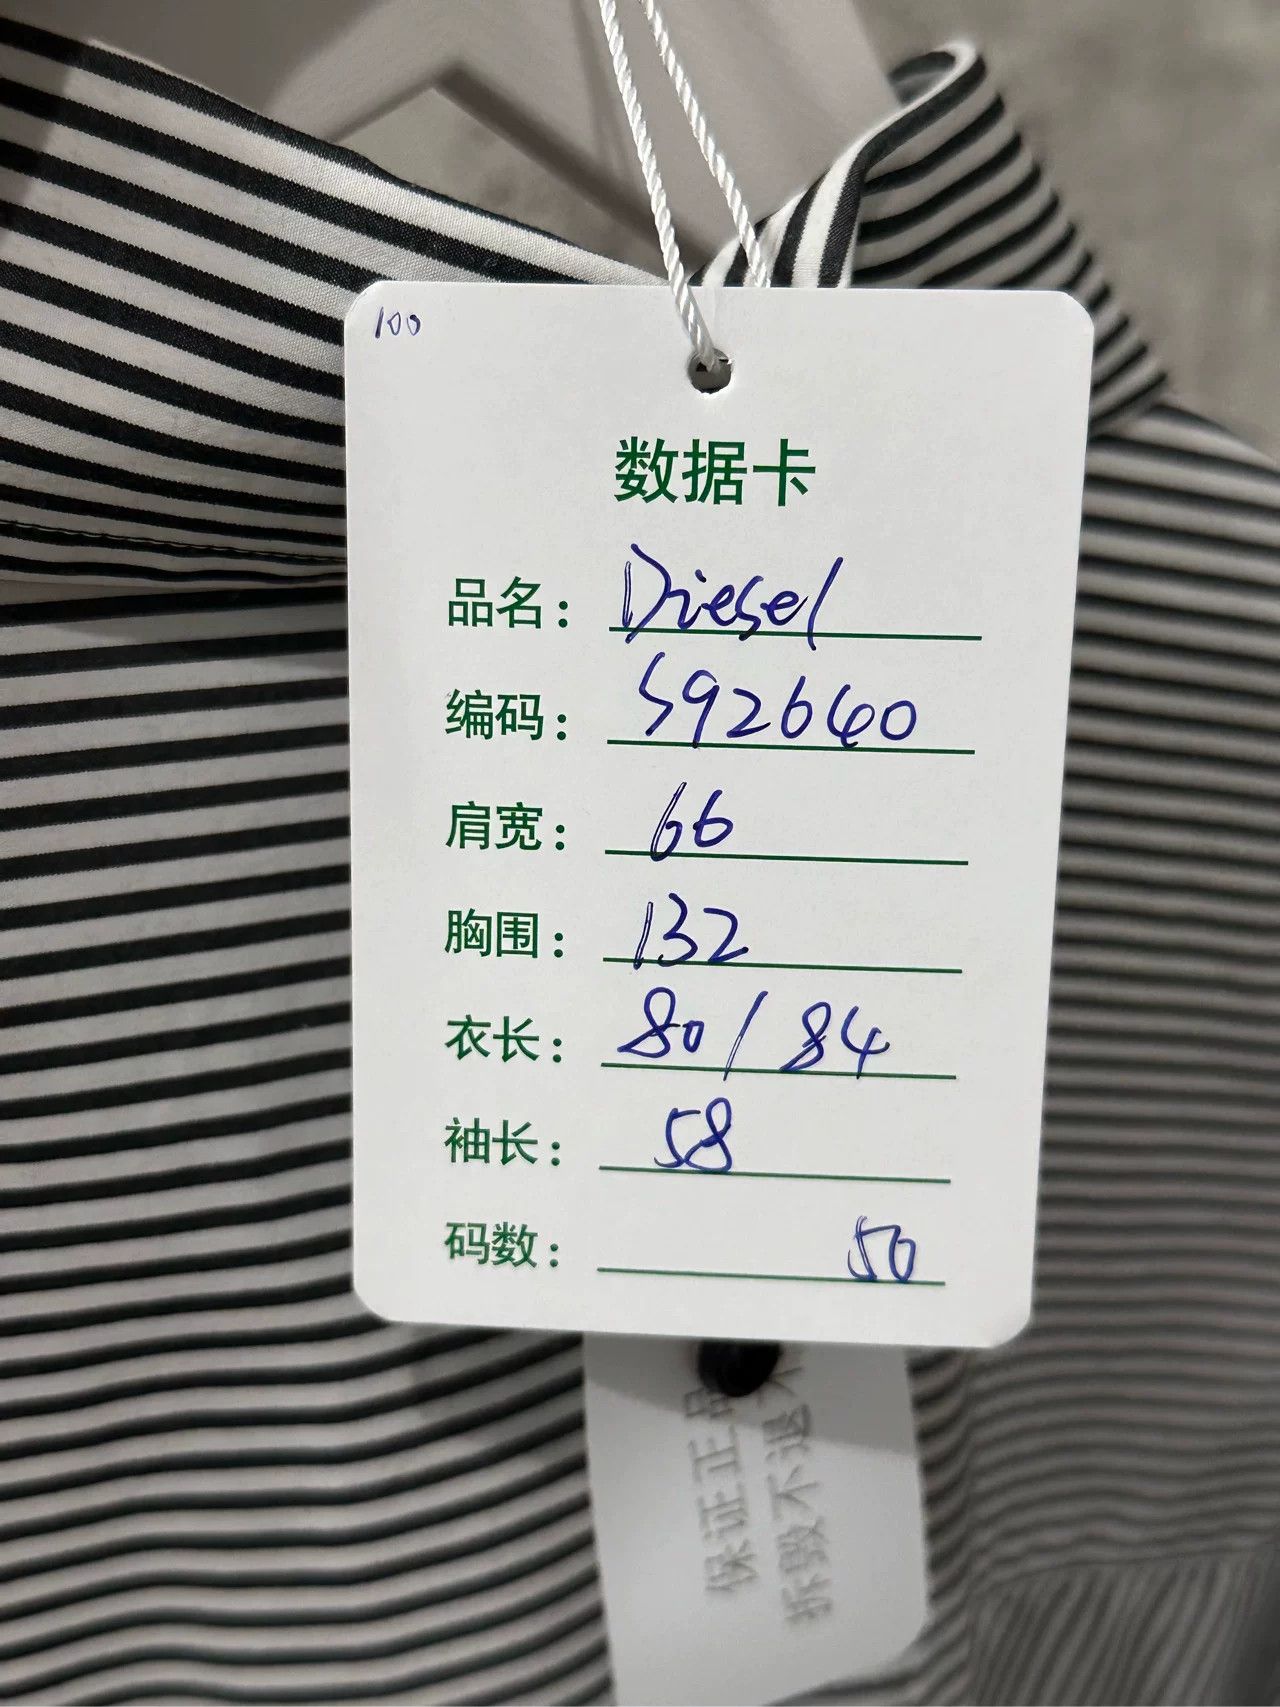 100
数据卡
品名：Diesel
编码：S92640
肩宽：66
胸围：132
衣长：80/84
袖长：58
码数：50
保证正品
拆毁不退